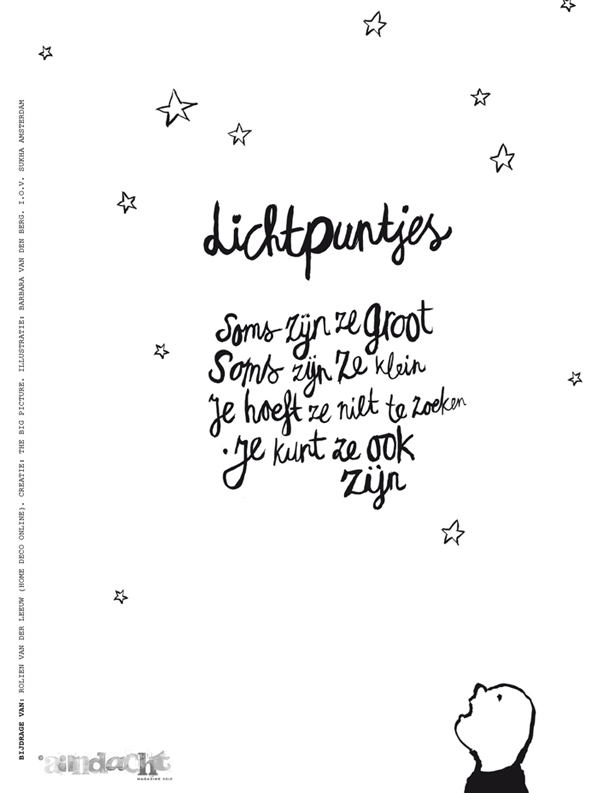 Lichtpuntjes
Soms zijn ze groot
Soms zijn ze klein
Je hoeft ze niet te zoeken
.Je kunt ze ook
zijn
BIJDRAGE VAN: ROLIEN VAN DER LEEUW (HOME DECO ONLINE). CREATIE: THE BIG PICTURE. ILLUSTRATIE: BARBARA VAN DEN BERG. I.O.V. SUKHA AMSTERDAM
aandacht
MAGAZINE 2012